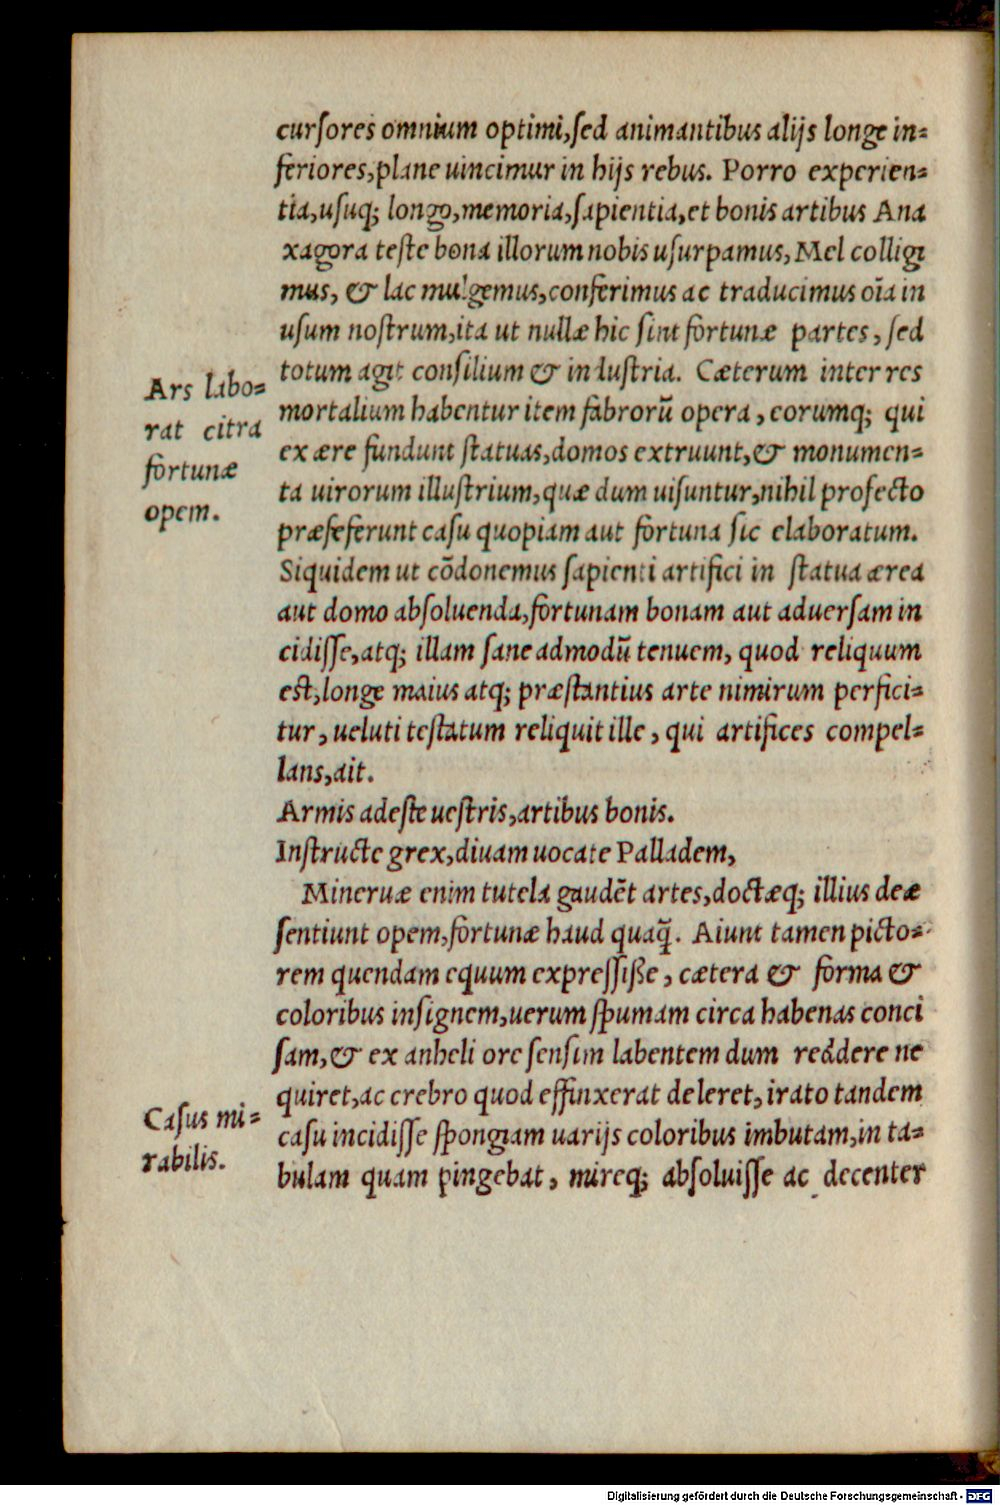 curſores omnium optimi,ſed animantibus alijs longe in=
feriores,plane uincimur in hijs rebus. Porro experien=
tia,uſuq; longo,memoria,ſapientia,et bonis artibus Ana
xagora teſte bona illorum nobis uſurpamus, Mel colligi
mus, & lac mulgemus,conferimus ac traducimus oīa in
uſum noſtrum,ita ut nullæ hic ſint fortunæ partes, ſed
totum agit conſilium & induſtria. Cæterum inter res
mortalium habentur item fabrorū opera, eorumq; qui
ex ære fundunt ſtatuas,domos extruunt,& monumen=
ta uirorum illuſtrium,quæ dum uiſuntur,nihil profecto
præſeferunt caſu quopiam aut fortuna ſic elaboratum.
Siquidem ut cōdonemus ſapienti artifici in ſtatua ærea
aut domo abſoluenda,fortunam bonam aut aduerſam in
cidiſſe,atq; illam ſane admodū tenuem, quod reliquum
eſt,longe maius atq; præſtantius arte nimirum perfici=
tur, ueluti teſtatum reliquit ille, qui artifices compel=
lans,ait.
Armis adeſte ueſtris,artibus bonis.
Inſtructe grex,diuam uocate Palladem,
Mineruæ enim tutela gaudēt artes,doctæq; illius deæ
ſentiunt opem,fortunæ haud quaq̃. Aiunt tamen picto=
rem quendam equum expreſſiße, cætera & forma &
coloribus inſignem,uerum ſpumam circa habenas conci
ſam,& ex anheli ore ſenſim labentem dum reddere ne
quiret,ac crebro quod effinxerat deleret, irato tandem
caſu incidiſſe ſpongiam uarijs coloribus imbutam,in ta=
bulam quam pingebat, mireq; abſoluiſſe ac decenter
Ars labo=
rat citra
fortunæ
opem.
Caſus mi=
rabilis.
Digitalisierung gefördert durch die Deutsche Forschungsgemeinschaft - DFG